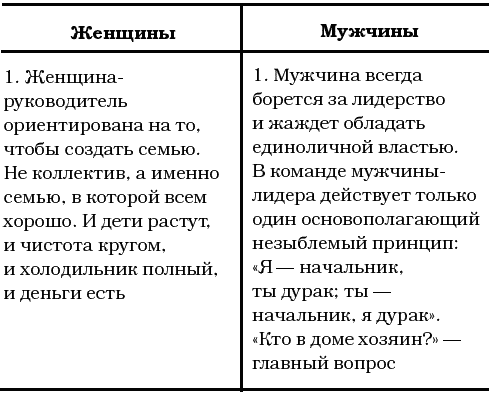 Женщины
Мужчины
1. Женщина-
руководитель
ориентирована на то,
чтобы создать семью.
Не коллектив, а именно
семью, в которой всем
хорошо. И дети растут,
и чистота кругом,
и холодильник полный,
и деньги есть
1. Мужчина всегда
борется за лидерство
и жаждет обладать
единоличной властью.
В команде мужчины-
лидера действует только
один основополагающий
незыблемый принцип:
«Я — начальник,
ты дурак; ты —
начальник, я дурак».
«Кто в доме хозяин?» —
главный вопрос